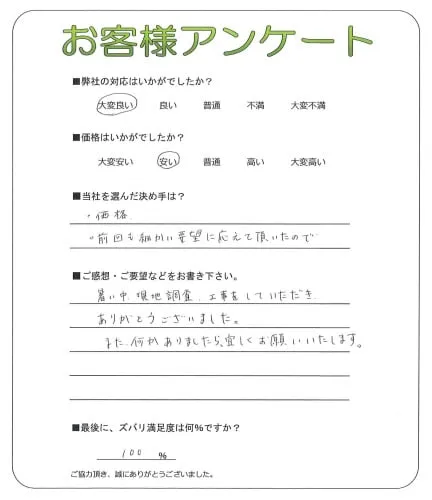 お客様アンケート
■弊社の対応はいかがでしたか?
大変良い 良い 普通 不満 大変不満
■価格はいかがでしたか?
大変安い 安い 普通 高い 大変高い
■当社を選んだ決め手は?
・価格
・前回も細かい要望に応えて頂いたので
■ご感想・ご要望などをお書き下さい。
暑い中、現地調査、工事をしていただき
ありがとうございました。
また、何かありましたら、宜しくお願いいたします。
■最後に、ズバリ満足度は何%ですか?
100 %
ご協力頂き、誠にありがとうございました。